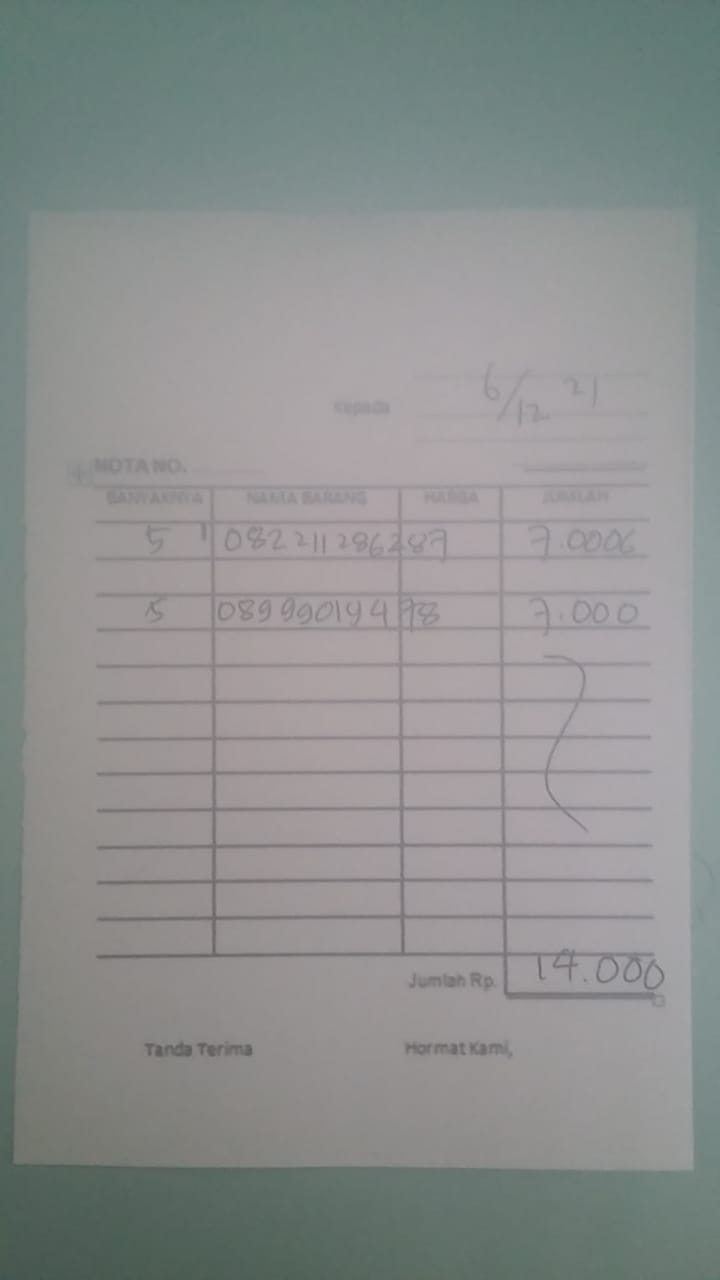 6/12 21
Kepada
NOTA NO.
BANYAKNYA NAMA BARANG HARGA JUMLAH
5 082211286287 7.000
5 089990194978 7.000
Jumlah Rp. 14.000
Tanda Terima Hormat Kami,